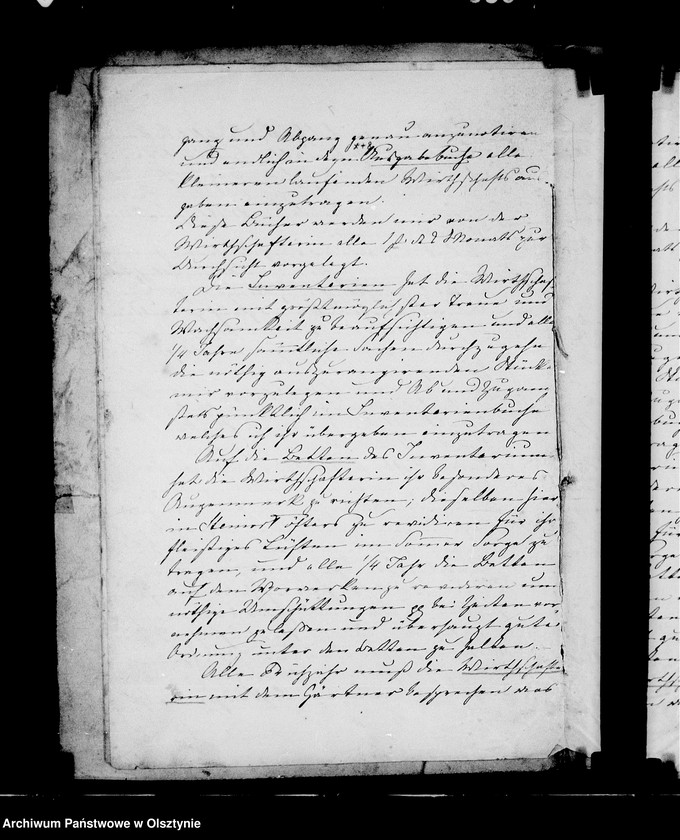 gang und Abgang genau anzunotiren
und endlich in dem Ausgabebuche alle
kleineren laufenden Wirthschafts aus-
gaben einzutragen.
Diese Bücher werden mir von der
Wirthschafterin alle 1t. des Monats zur
Durchsicht vorgelegt.
Die Inventarien hat die Wirthschaf-
terin mit größtmöglichster Treue und
Wachsamkeit zu beaufsichtigen und alle
1/4 Jahr sämtliche Sachen durchzugehn
die nöthig auszurangirenden Stücke
mir vorzulegen und Ab und Zugang
stets pünktlich im Inventarienbuche
welches ich ihr übergeben einzutragen
Auf die Betten des Inventariums
hat die Wirthschafterin ihr besonderes
Augenmerk zu richten; dieselben hier
in Steinort öfters zu revidiren für ihr
fleißiges Lüften im Sommer Sorge zu
tragen, und alle 1/4 Jahr die Betten
auf den Vorwerken zu revidiren um
nöthige Umschüttungen pp bei Zeiten vor
nehmen zu lassen und überhaupt gute
Ordnung unter den Betten zu halten.
Alle Frühjahr muß die Wirthschafte
rin mit dem Gärtner besprechen was
Archiwum Państwowe w Olsztynie